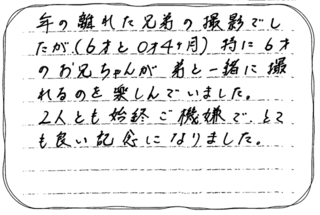 年の離れた兄弟の撮影でし
たが(6才と0才4ヶ月)特に6才
のお兄ちゃんが弟と一緒に撮
れるのを楽しんでいました。
2人とも始終ご機嫌で、とて
も良い記念になりました。